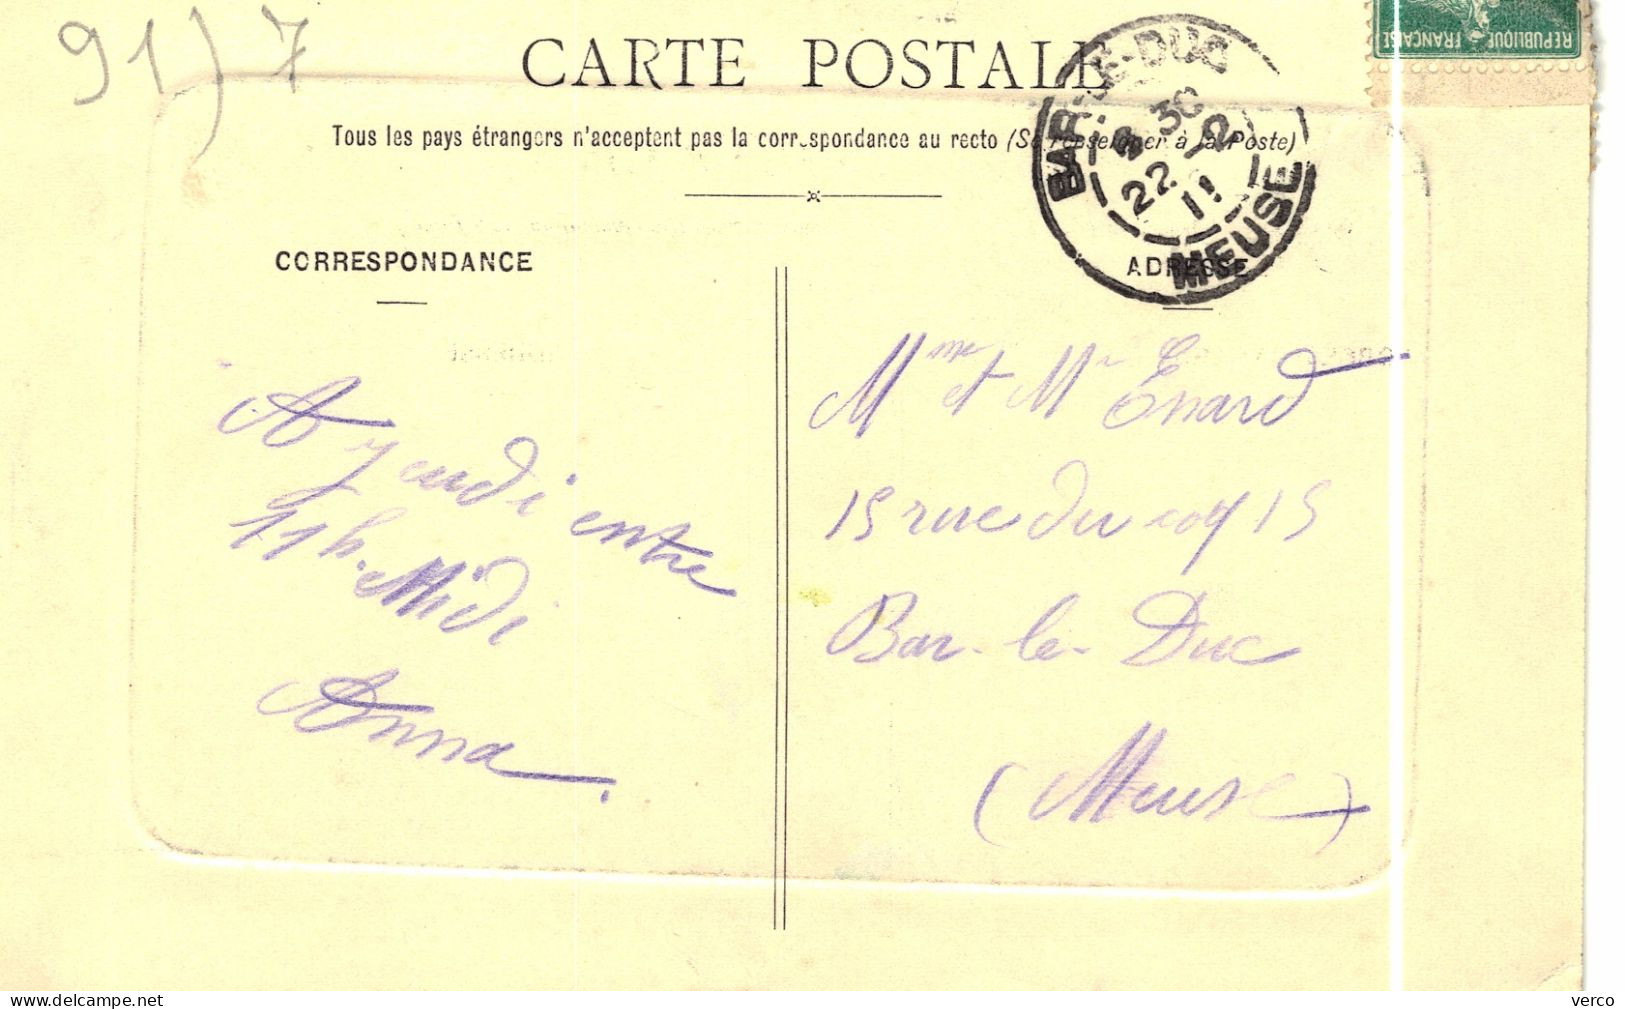 91) 7
CARTE POSTALE
REPUBLIQUE FRANÇAISE
Tous les pays étrangers n'acceptent pas la correspondance au recto (Se renseigner à la Poste)
BAR-LE-DUC
30
22 12
11
MEUSE
CORRESPONDANCE
ADRESSE
A jeudi entre
11 h. Midi
Anna.
Mme et Mr Enard
15 rue du coq 15
Bar-le-Duc
(Meuse)
verco